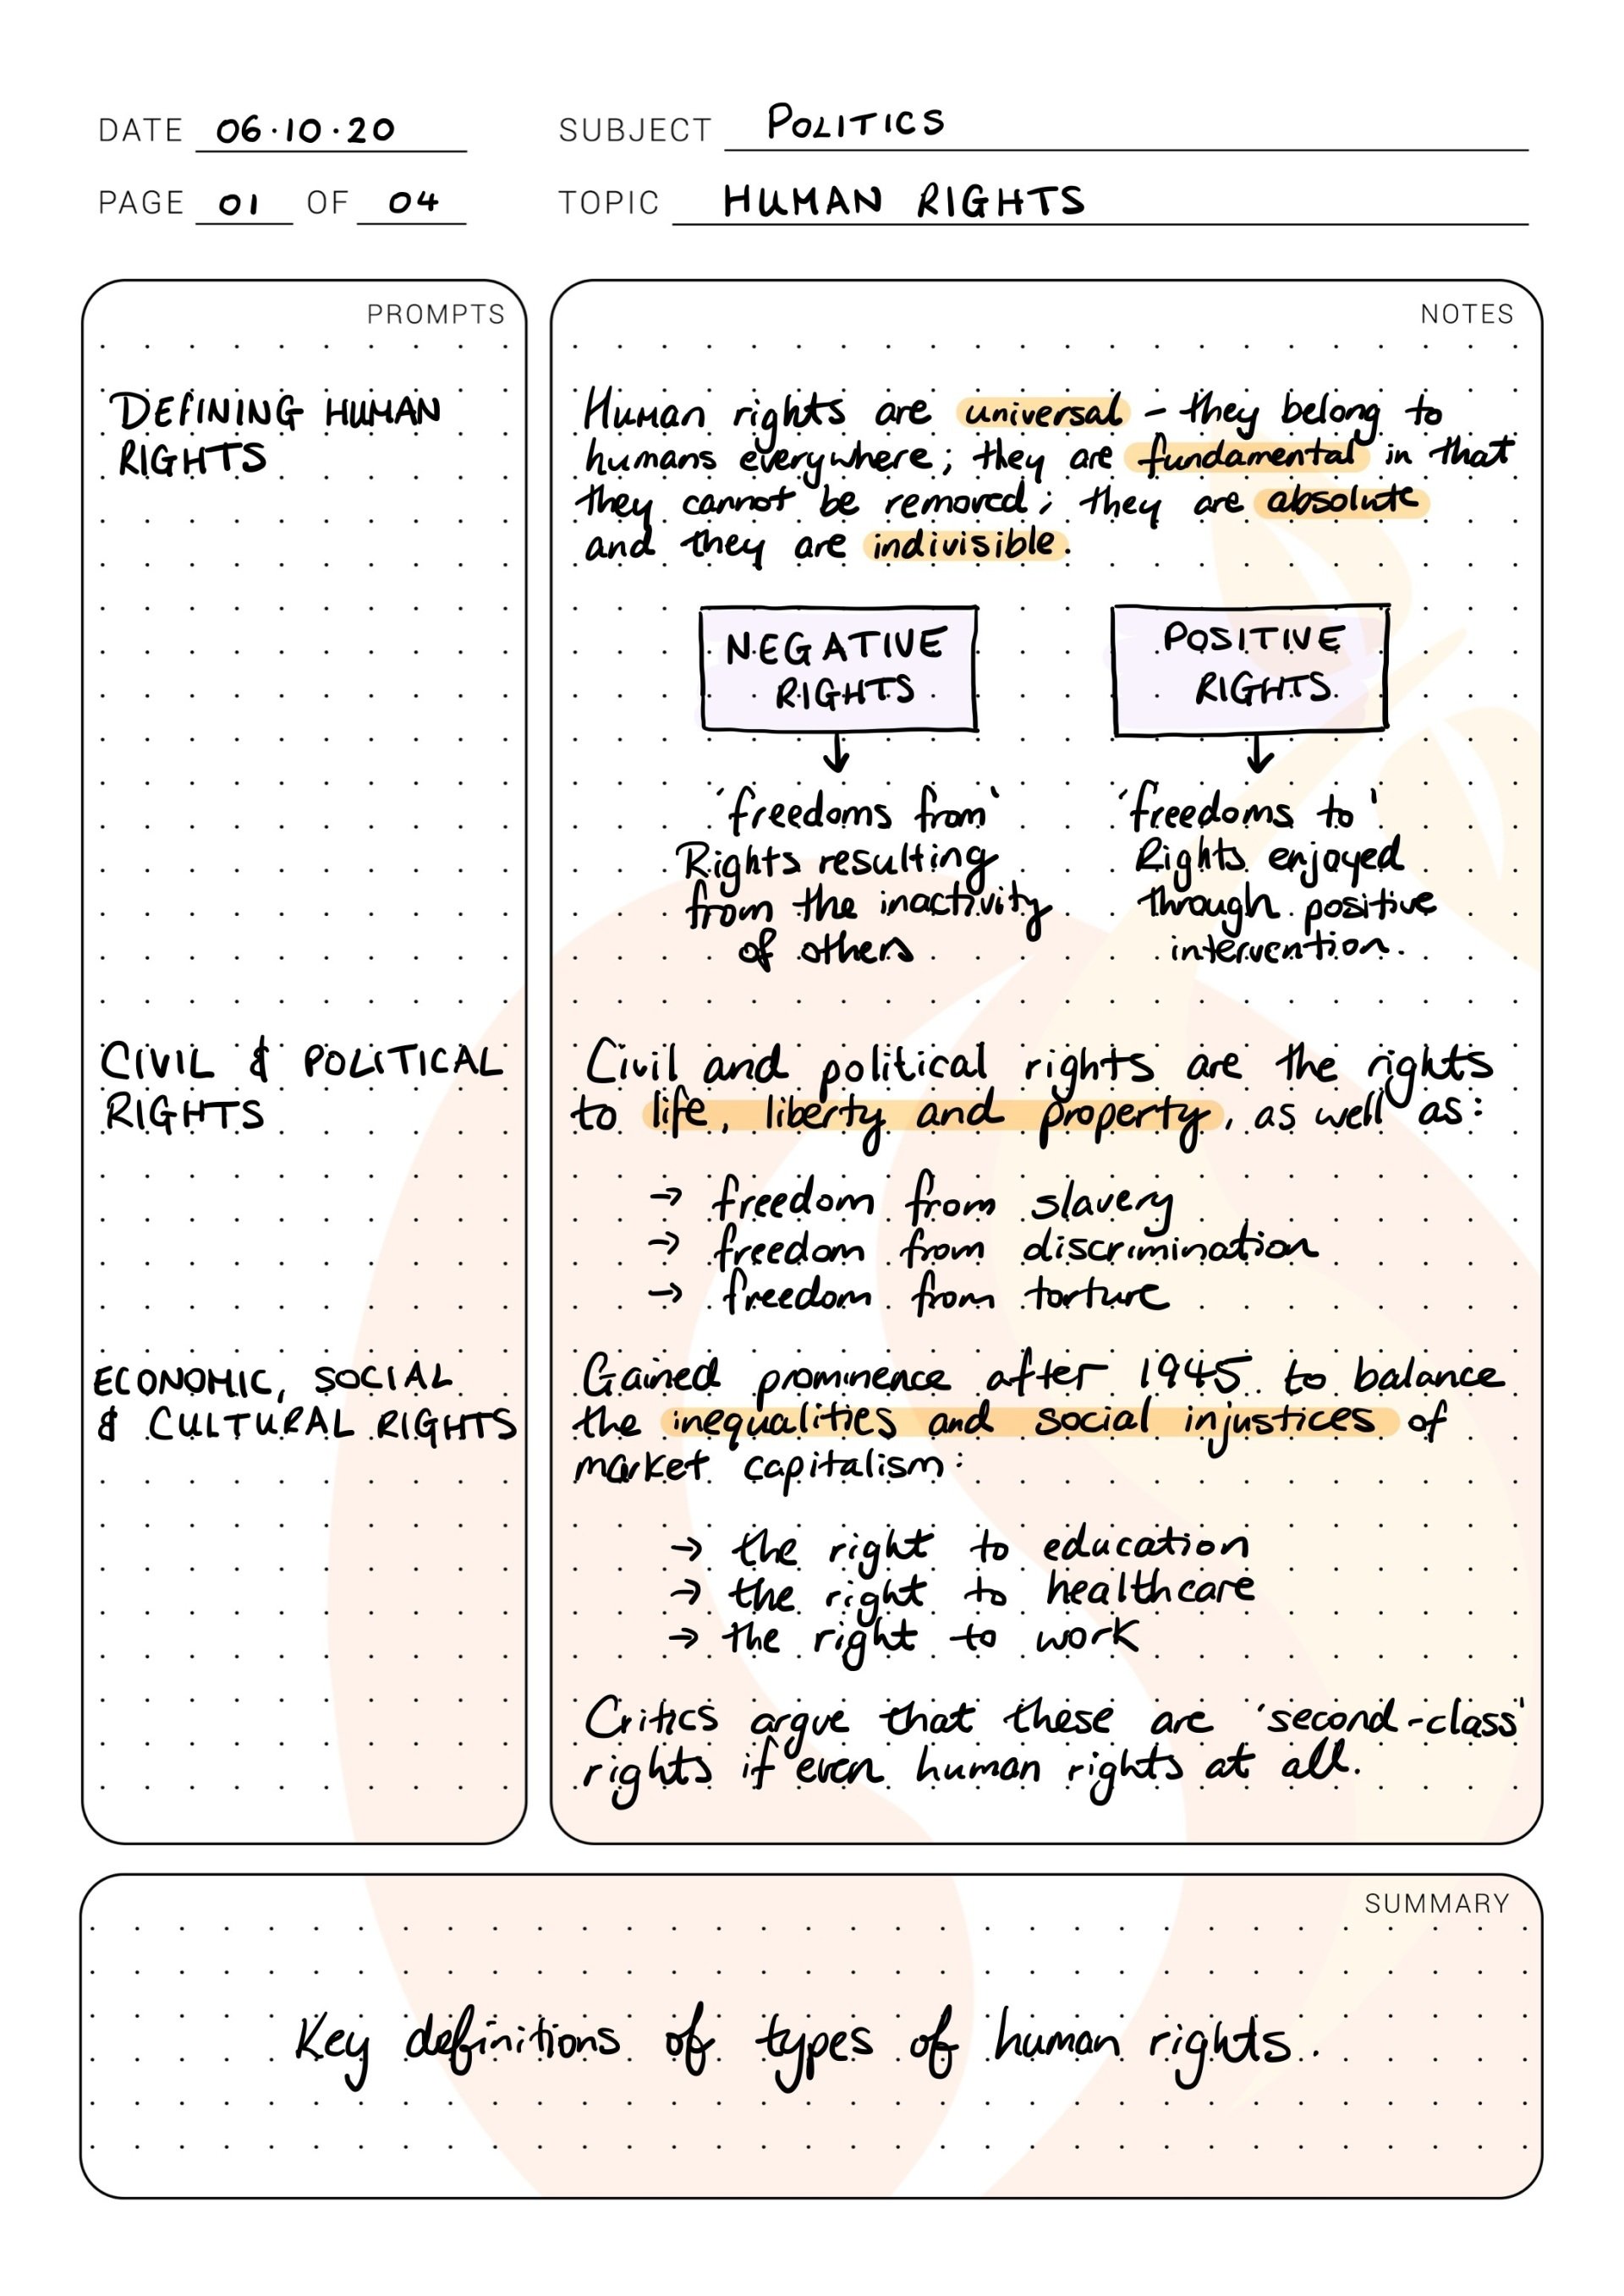 DATE 06.10.20
SUBJECT POLITICS
PAGE 01 OF 04
TOPIC HUMAN RIGHTS
PROMPTS
NOTES
DEFINING HUMAN
RIGHTS
Human rights are universal - they belong to
humans everywhere; they are fundamental in that
they cannot be removed; they are absolute
and they are indivisible.
NEGATIVE
RIGHTS
'freedoms from'
Rights resulting
from the inactivity
of others
POSITIVE
RIGHTS
'freedoms to'
Rights enjoyed
through positive
intervention.
CIVIL & POLITICAL
RIGHTS
Civil and political rights are the rights
to life, liberty and property, as well as:
→ freedom from slavery
→ freedom from discrimination
→ freedom from torture
ECONOMIC, SOCIAL
& CULTURAL RIGHTS
Gained prominence after 1945 to balance
the inequalities and social injustices of
market capitalism:
→ the right to education
→ the right to healthcare
→ the right to work
Critics argue that these are 'second-class'
rights if even human rights at all.
SUMMARY
Key definitions of types of human rights.